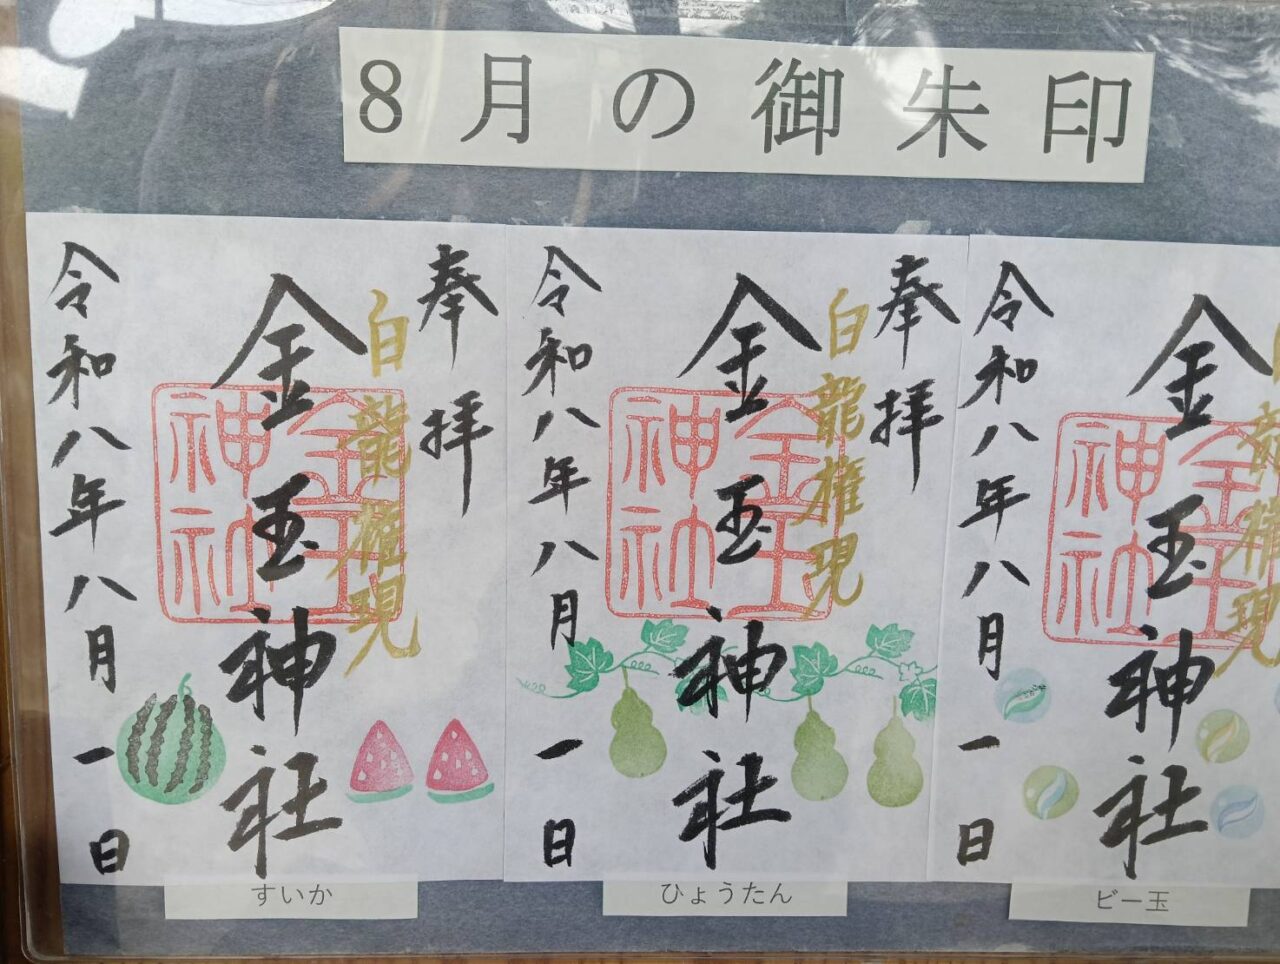 8月の御朱印
奉拝
白龍権現
金玉神社
金玉神社
令和八年八月一日
すいか
奉拝
白龍権現
金玉神社
金玉神社
令和八年八月一日
ひょうたん
龍権現
金玉神社
金玉神社
令和八年八月一日
ビー玉